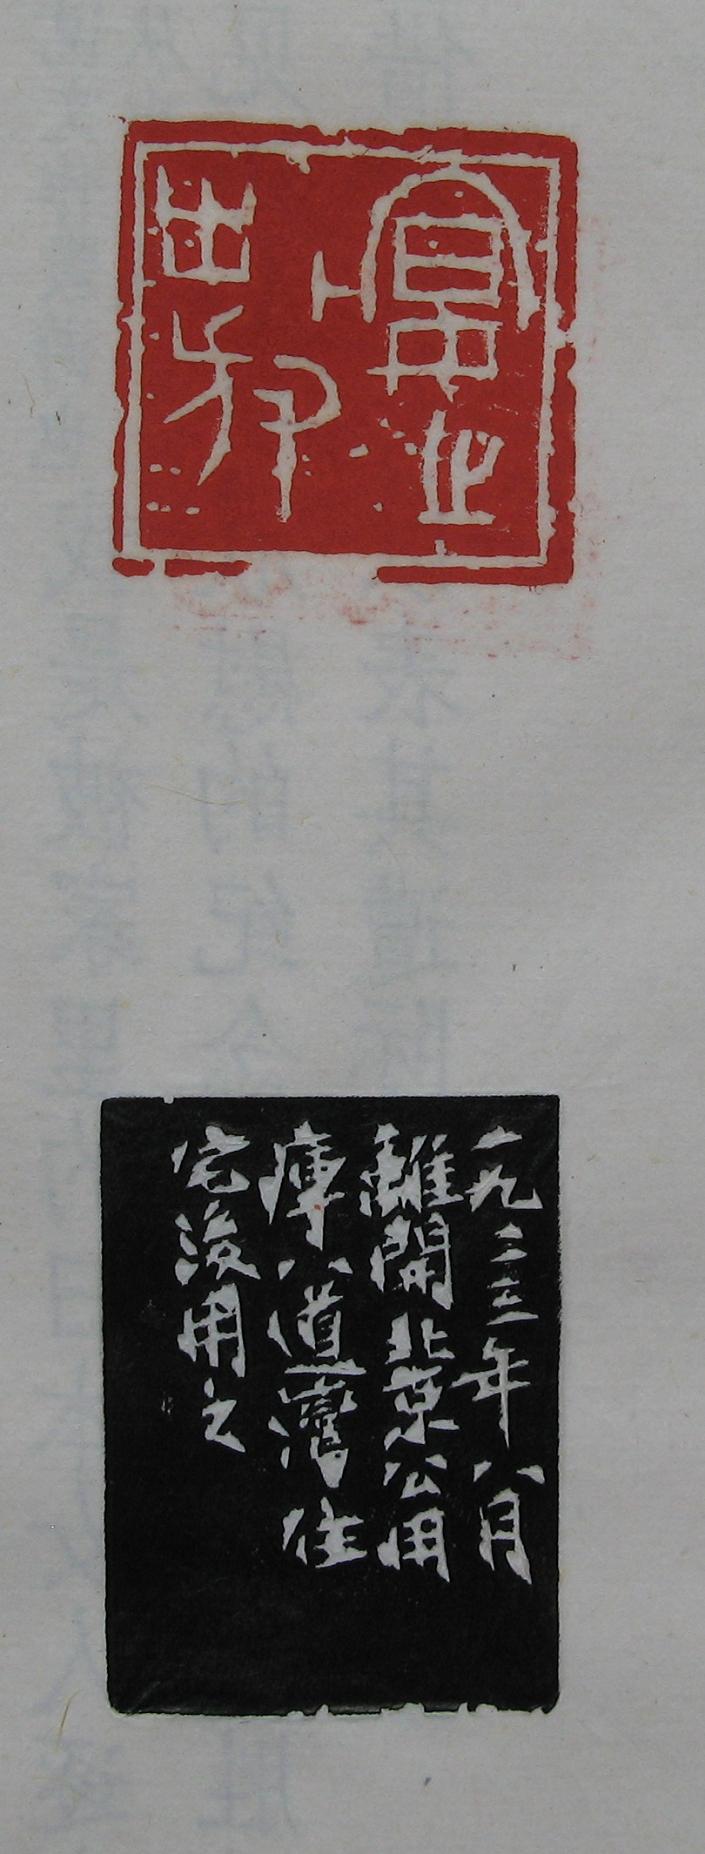 宴之
敖
一九二三年八月
離開北京公用
庫八道灣住
宅後用之